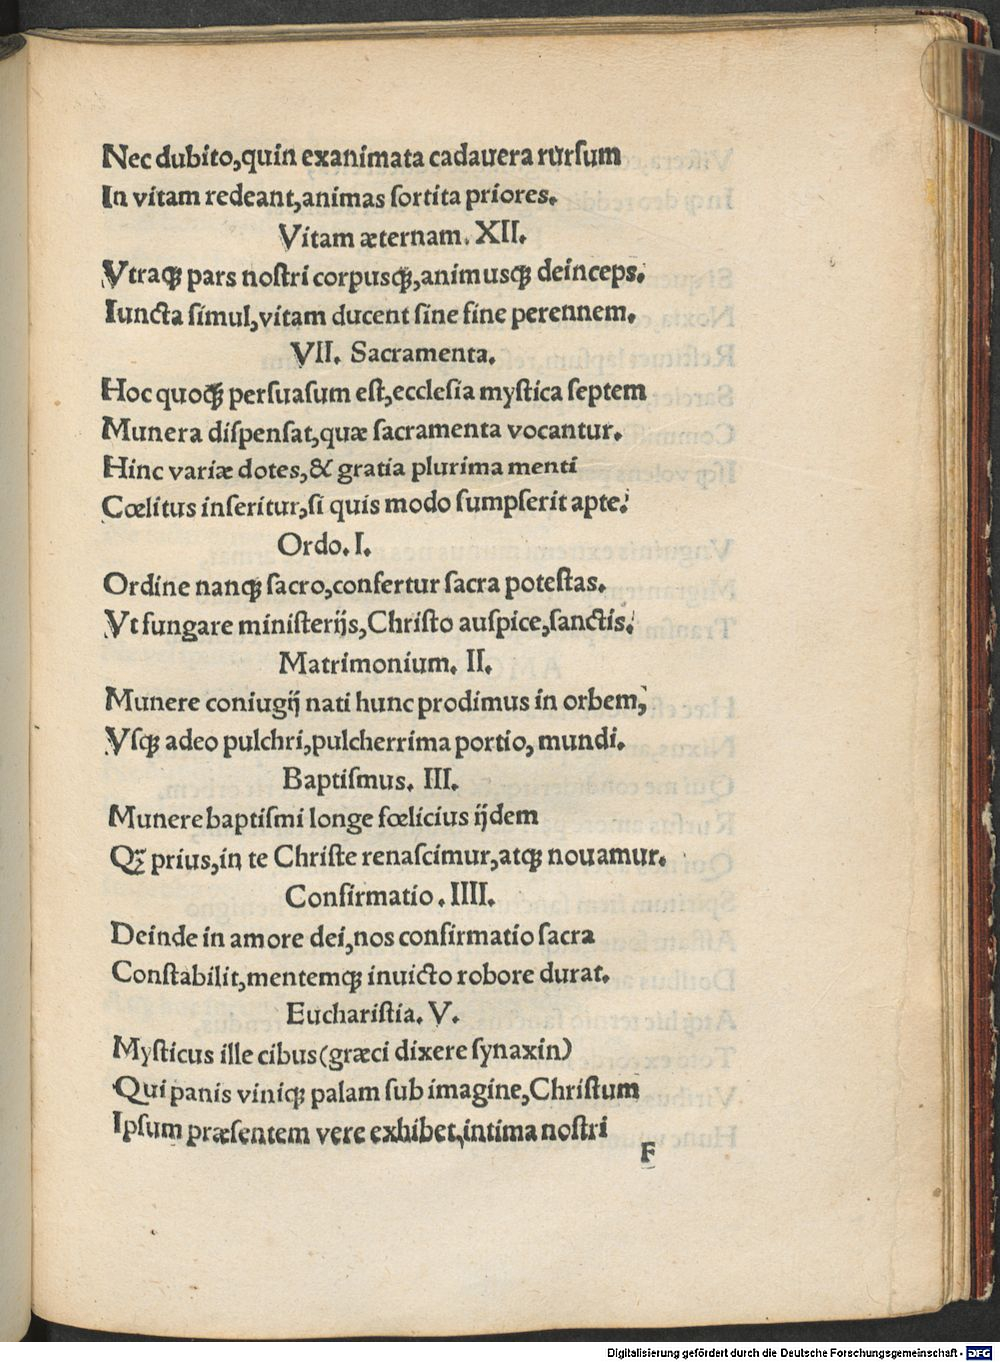 Nec dubito,quin exanimata cadauera rursum
In vitam redeant,animas ſortita priores.
Vitam æternam. XII.
Vtraqꝫ pars noſtri corpusqꝫ,animusqꝫ deinceps.
Iuncta ſimul,vitam ducent ſine fine perennem.
VII. Sacramenta.
Hoc quoqꝫ perſuaſum eſt,eccleſia myſtica ſeptem
Munera diſpenſat,quæ ſacramenta vocantur.
Hinc variæ dotes,& gratia plurima menti
Cœlitus inſeritur,ſi quis modo ſumpſerit apte.
Ordo. I.
Ordine nanqꝫ ſacro,confertur ſacra poteſtas.
Vt fungare miniſterijs,Chriſto auſpice,ſanctis.
Matrimonium. II.
Munere coniugij nati hunc prodimus in orbem,
Vſqꝫ adeo pulchri,pulcherrima portio, mundi.
Baptiſmus. III.
Munere baptiſmi longe fœlicius ijdem
Qꝫ prius,in te Chriſte renaſcimur,atqꝫ nouamur.
Confirmatio. IIII.
Deinde in amore dei,nos confirmatio ſacra
Conſtabilit,mentemqꝫ inuicto robore durat.
Euchariſtia. V.
Myſticus ille cibus(græci dixere ſynaxin)
Qui panis viniqꝫ palam ſub imagine,Chriſtum
Ipſum præſentem vere exhibet,intima noſtri
F
Digitalisierung gefördert durch die Deutsche Forschungsgemeinschaft - DFG